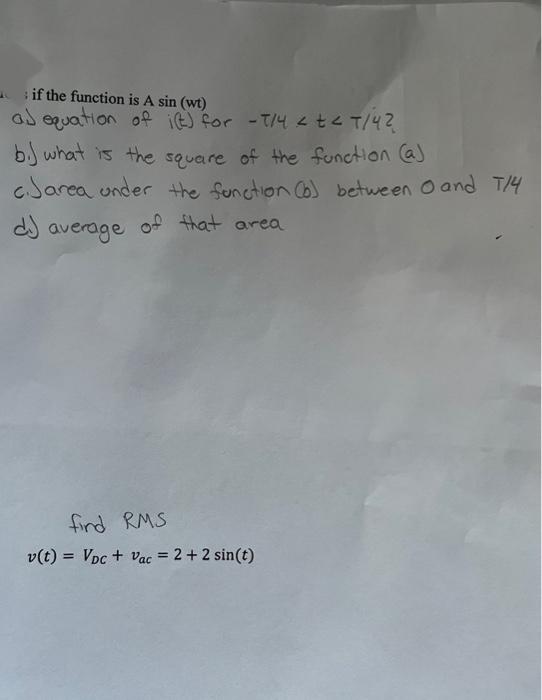 : if the function is A sin (wt)
a) equation of i(t) for -T/4 < t < T/4?
b) what is the square of the function (a)
c.) area under the function (b) between 0 and T/4
d) average of that area
find RMS
v(t) = V_DC + v_ac = 2 + 2 sin(t)